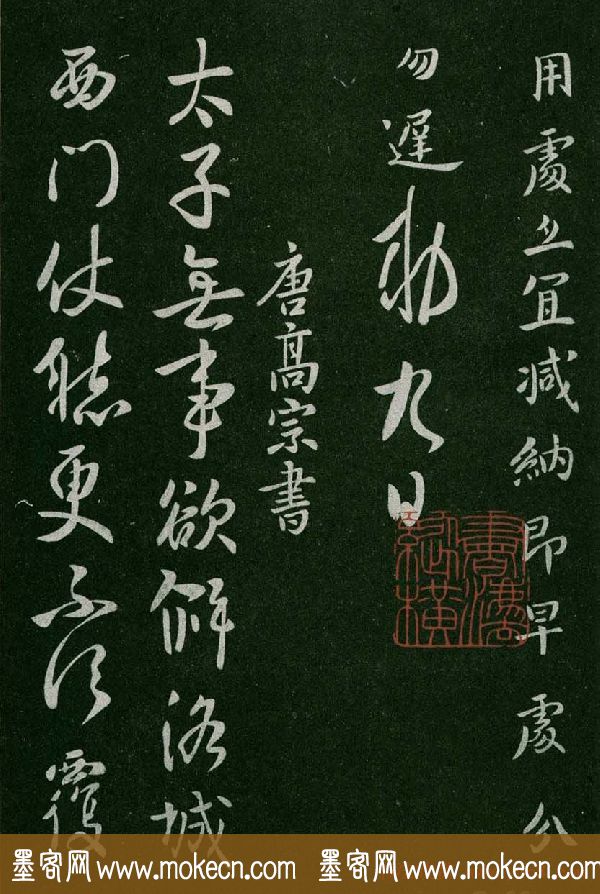 用處宜減納即早處分
勿遲勅九日
唐髙宗書
太子無事欲解洛城
西門仗聽更不須覆
墨客网 www.mokecn.com 墨客网 www.mokecn.com